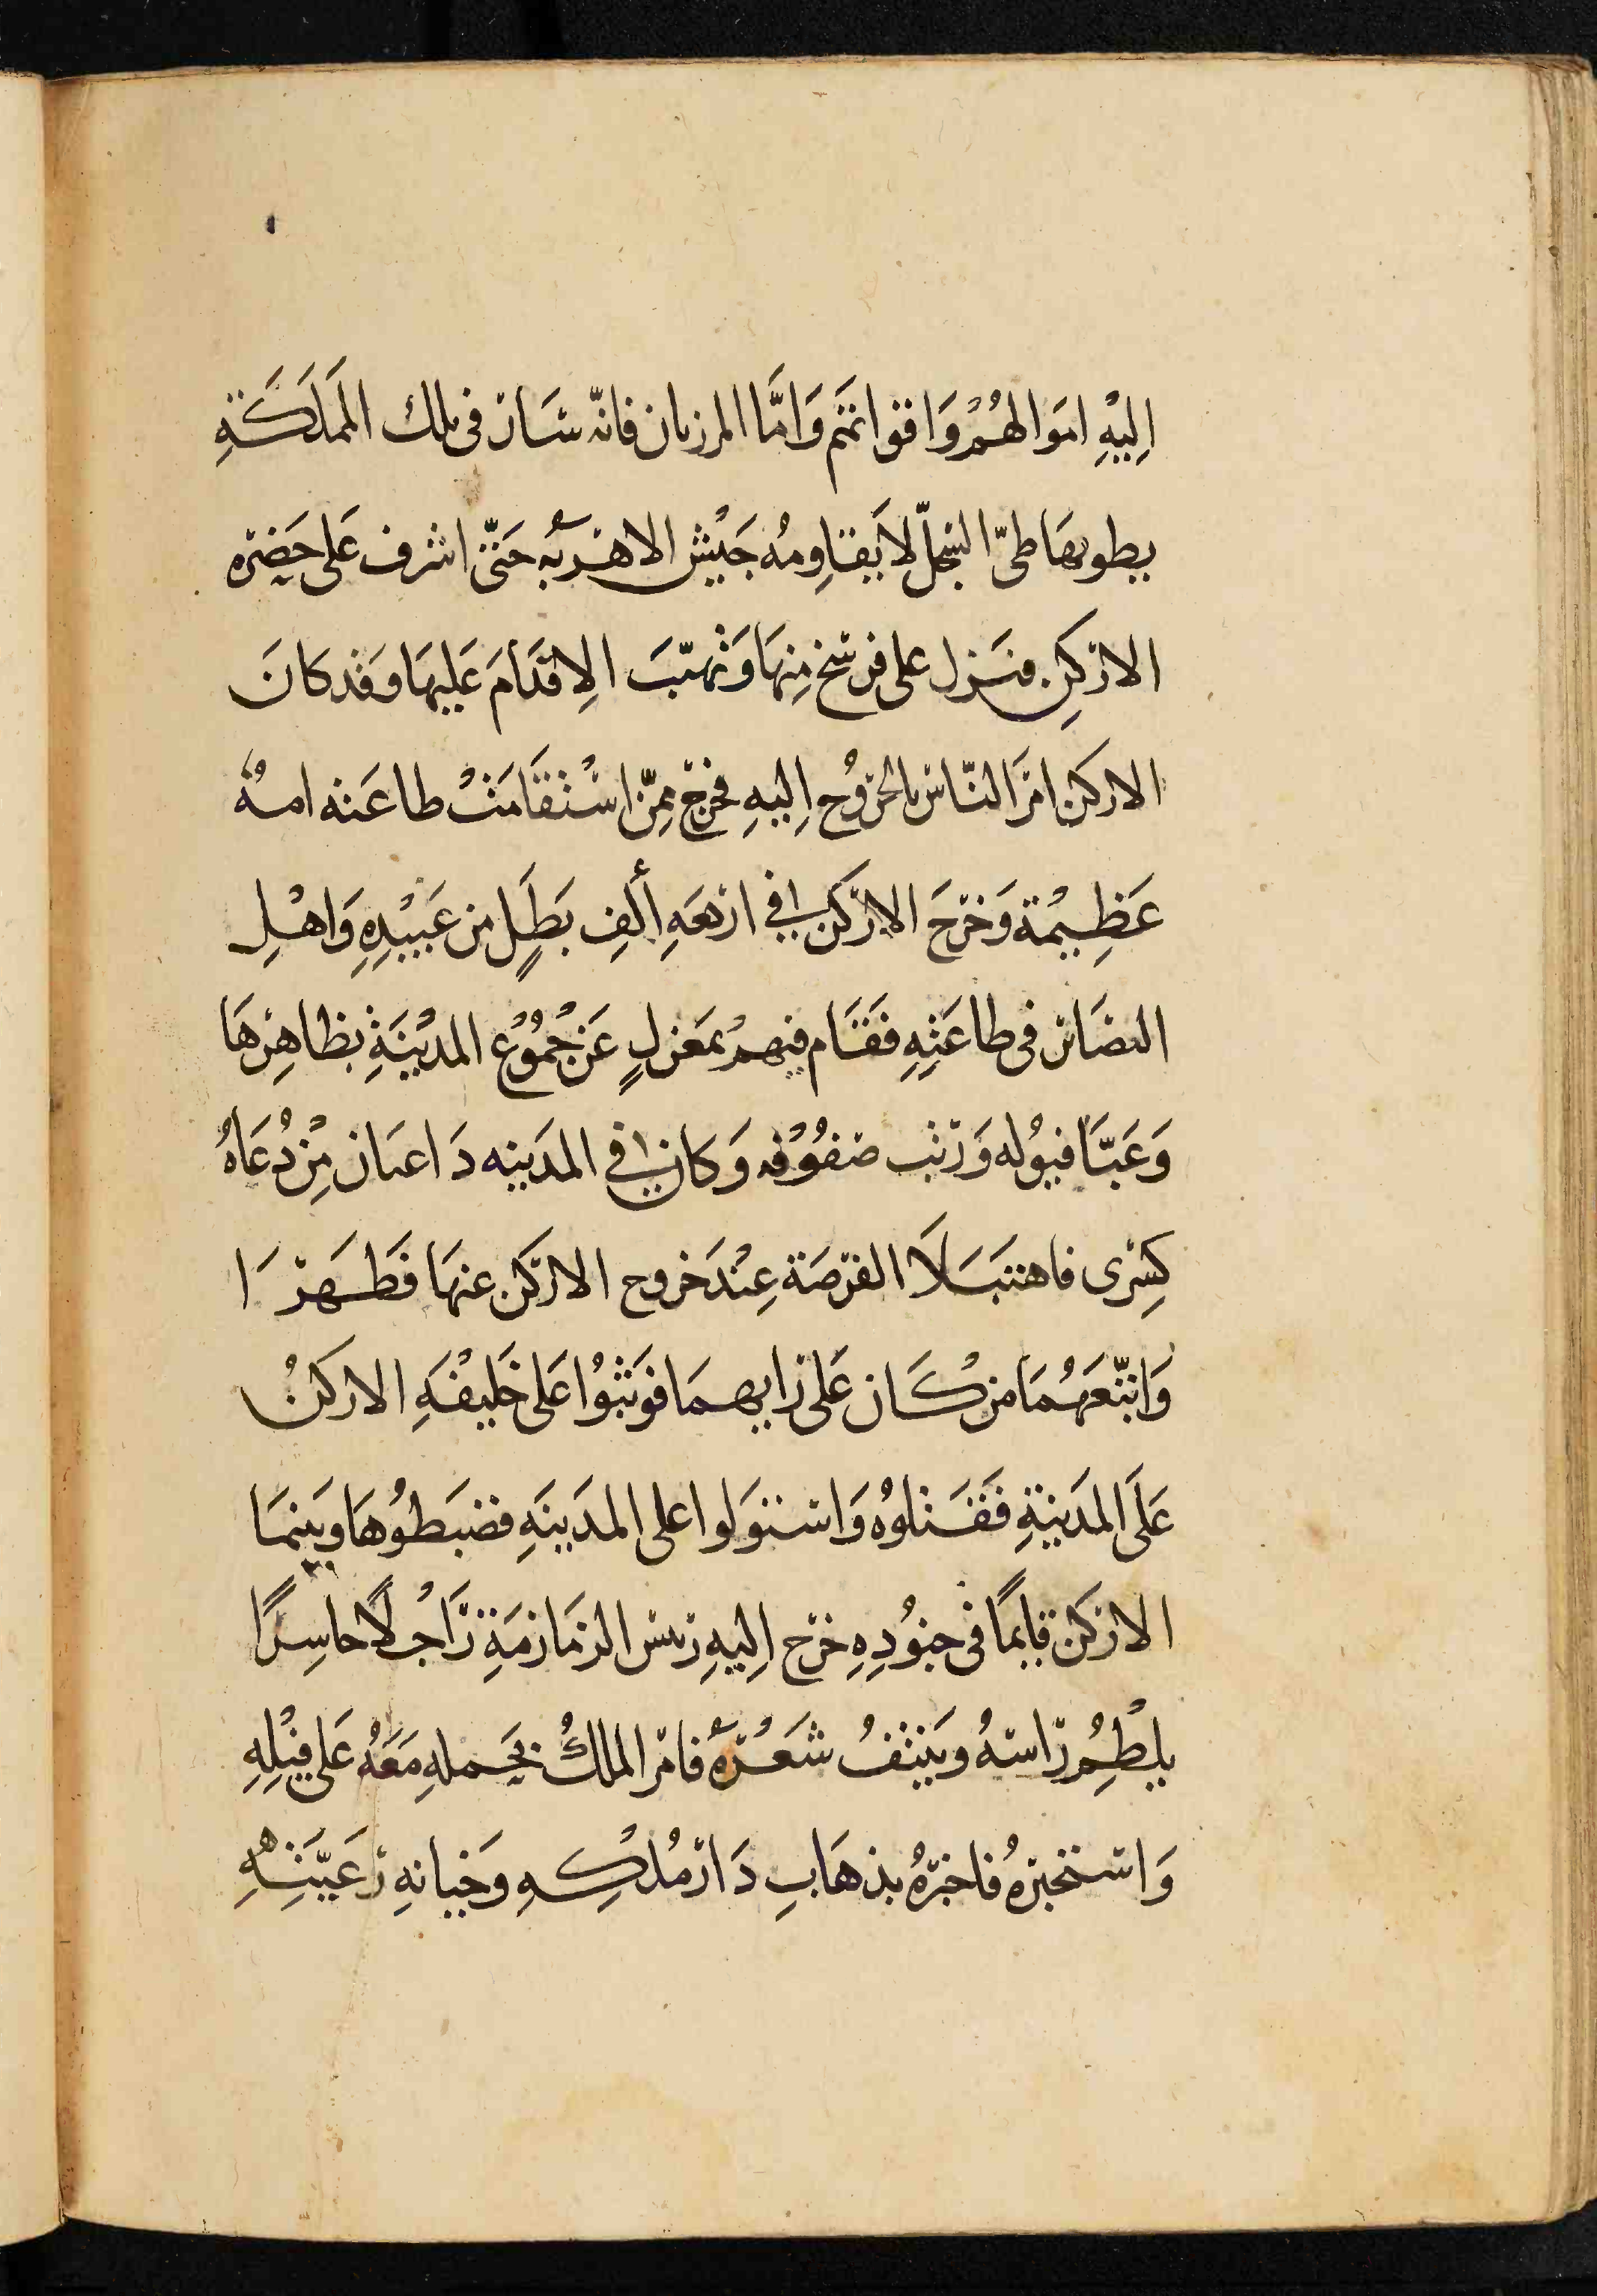 اِلَيْهِ امَوَالهُمْ وَافواتهم وَامَّا المرزبان فانّه سَار فى تلك المَملَكَةِ
يطويهَا طىّ السّجلّ لاَ يقاوِمُه جَيْش الا هزمهُ حَتّى اشرف عَلى حَضرَه
الاركِن فنَزل على فرسَخ مِنهَا وَتهيّبَ الاِقدَامَ عَليهَا وقد كانَ
الاركن امَرَ النّاسَ بالخرُوُج اِليهِ فخرج مِمّن اسْتقَامَتْ طاعَته امة
عَظِيمْة وَخرَجَ الاركن في اربعَهِ ألفِ بَطَلٍ من عَبيْدِهِ وَاهْلِ
البصَائر فى طاعَتِهِ فَقَام فيهمْ بمَعْزلٍ عَن جُمُوْع المدِيْنَةِ بظاهِرْهَا
وَعَبّأ فيوُله وَرتب صفوُفه وَكان في المدَينه دَاعيَان مِنْ دُعَاهُ
كِسْرى فاهتبَلاَ الفرْصَة عِنْدَ خروج الاركن عنهَا فَظَهَرَا
وَاتبّعَهُمَا من كَان عَلى رايهمَا فوَثبوُا عَلى خَليفْهَِ الاركنُ
عَلَى المدَينةِ فَقَتلوُه وَاستوَلوا على المدَينَهِ فضبَطوُهَا وبَينمَا
الاركن قايمًا فى جنوُدِهِ خرَج اِليهِ رئيس الزمَازمَةِ رَاجْلاً حاسِرًا
يلْطُم رَاسهُ وَينتفُ شَعْرَهُ فامَر الملكُ بحَملهِ مَعَهُ عَلى فيْلِهِ
وَاستخبرَهُ فاخبَرَهُ بذهَابِ دَار مُلْكِهِ وَخيانهِ رَعَيّتِهِ